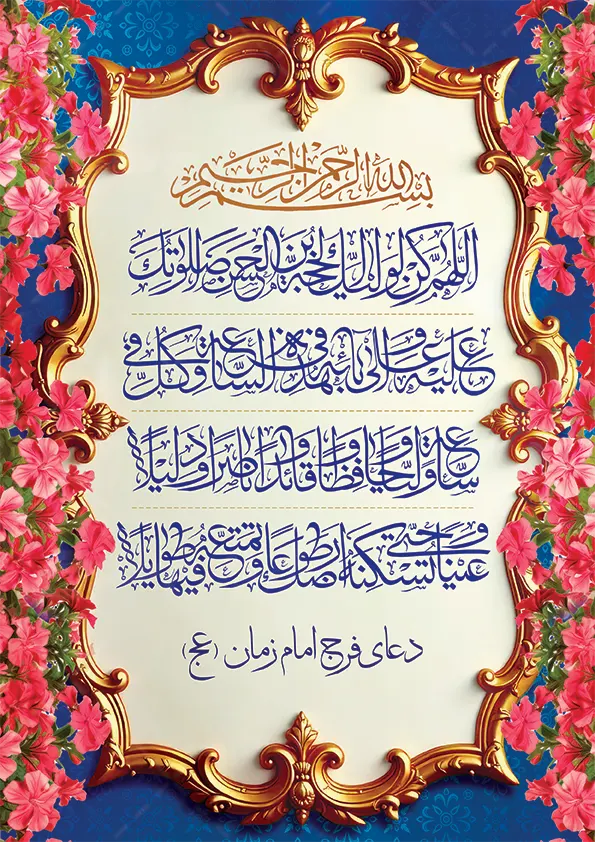 بسم الله الرحمن الرحیم
اللهم کن لولیک الحجة بن الحسن صلواتک
علیه و علی آبائه فی هذه الساعة و فی کل
ساعة ولیا و حافظا و قائدا و ناصرا و دلیلا
و عینا حتی تسکنه ارضک طوعا و تمتعه فیها طویلا
دعای فرج امام زمان (عج)